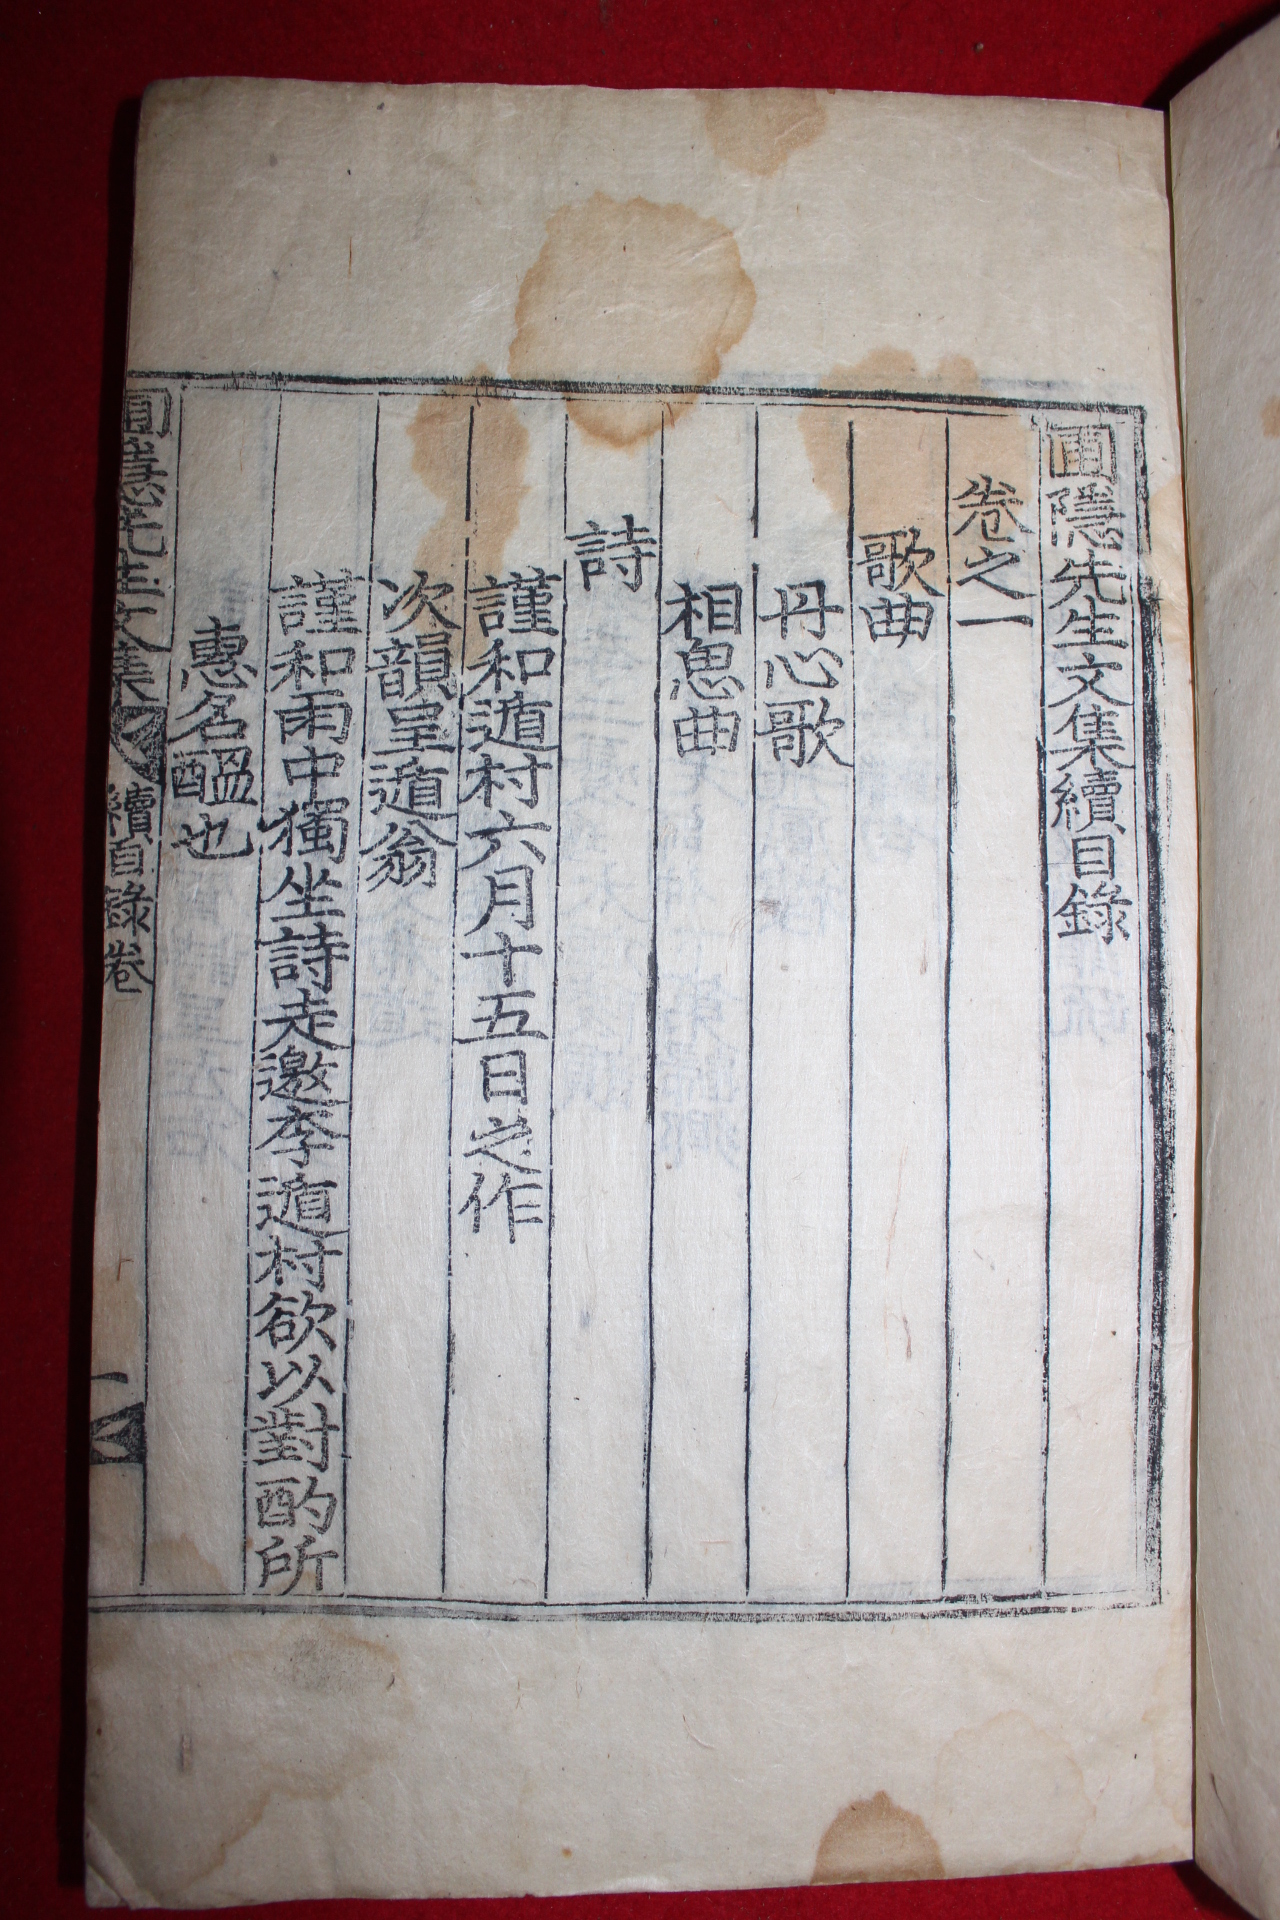 圃隱先生文集續目錄
卷之一
歌曲
丹心歌
相思曲
詩
謹和遁村六月十五日之作
次韻呈遁翁
謹和雨中獨坐詩走邀李遁村欲以對酌所
惠名醞也
圃隱先生文集
續目錄卷
一